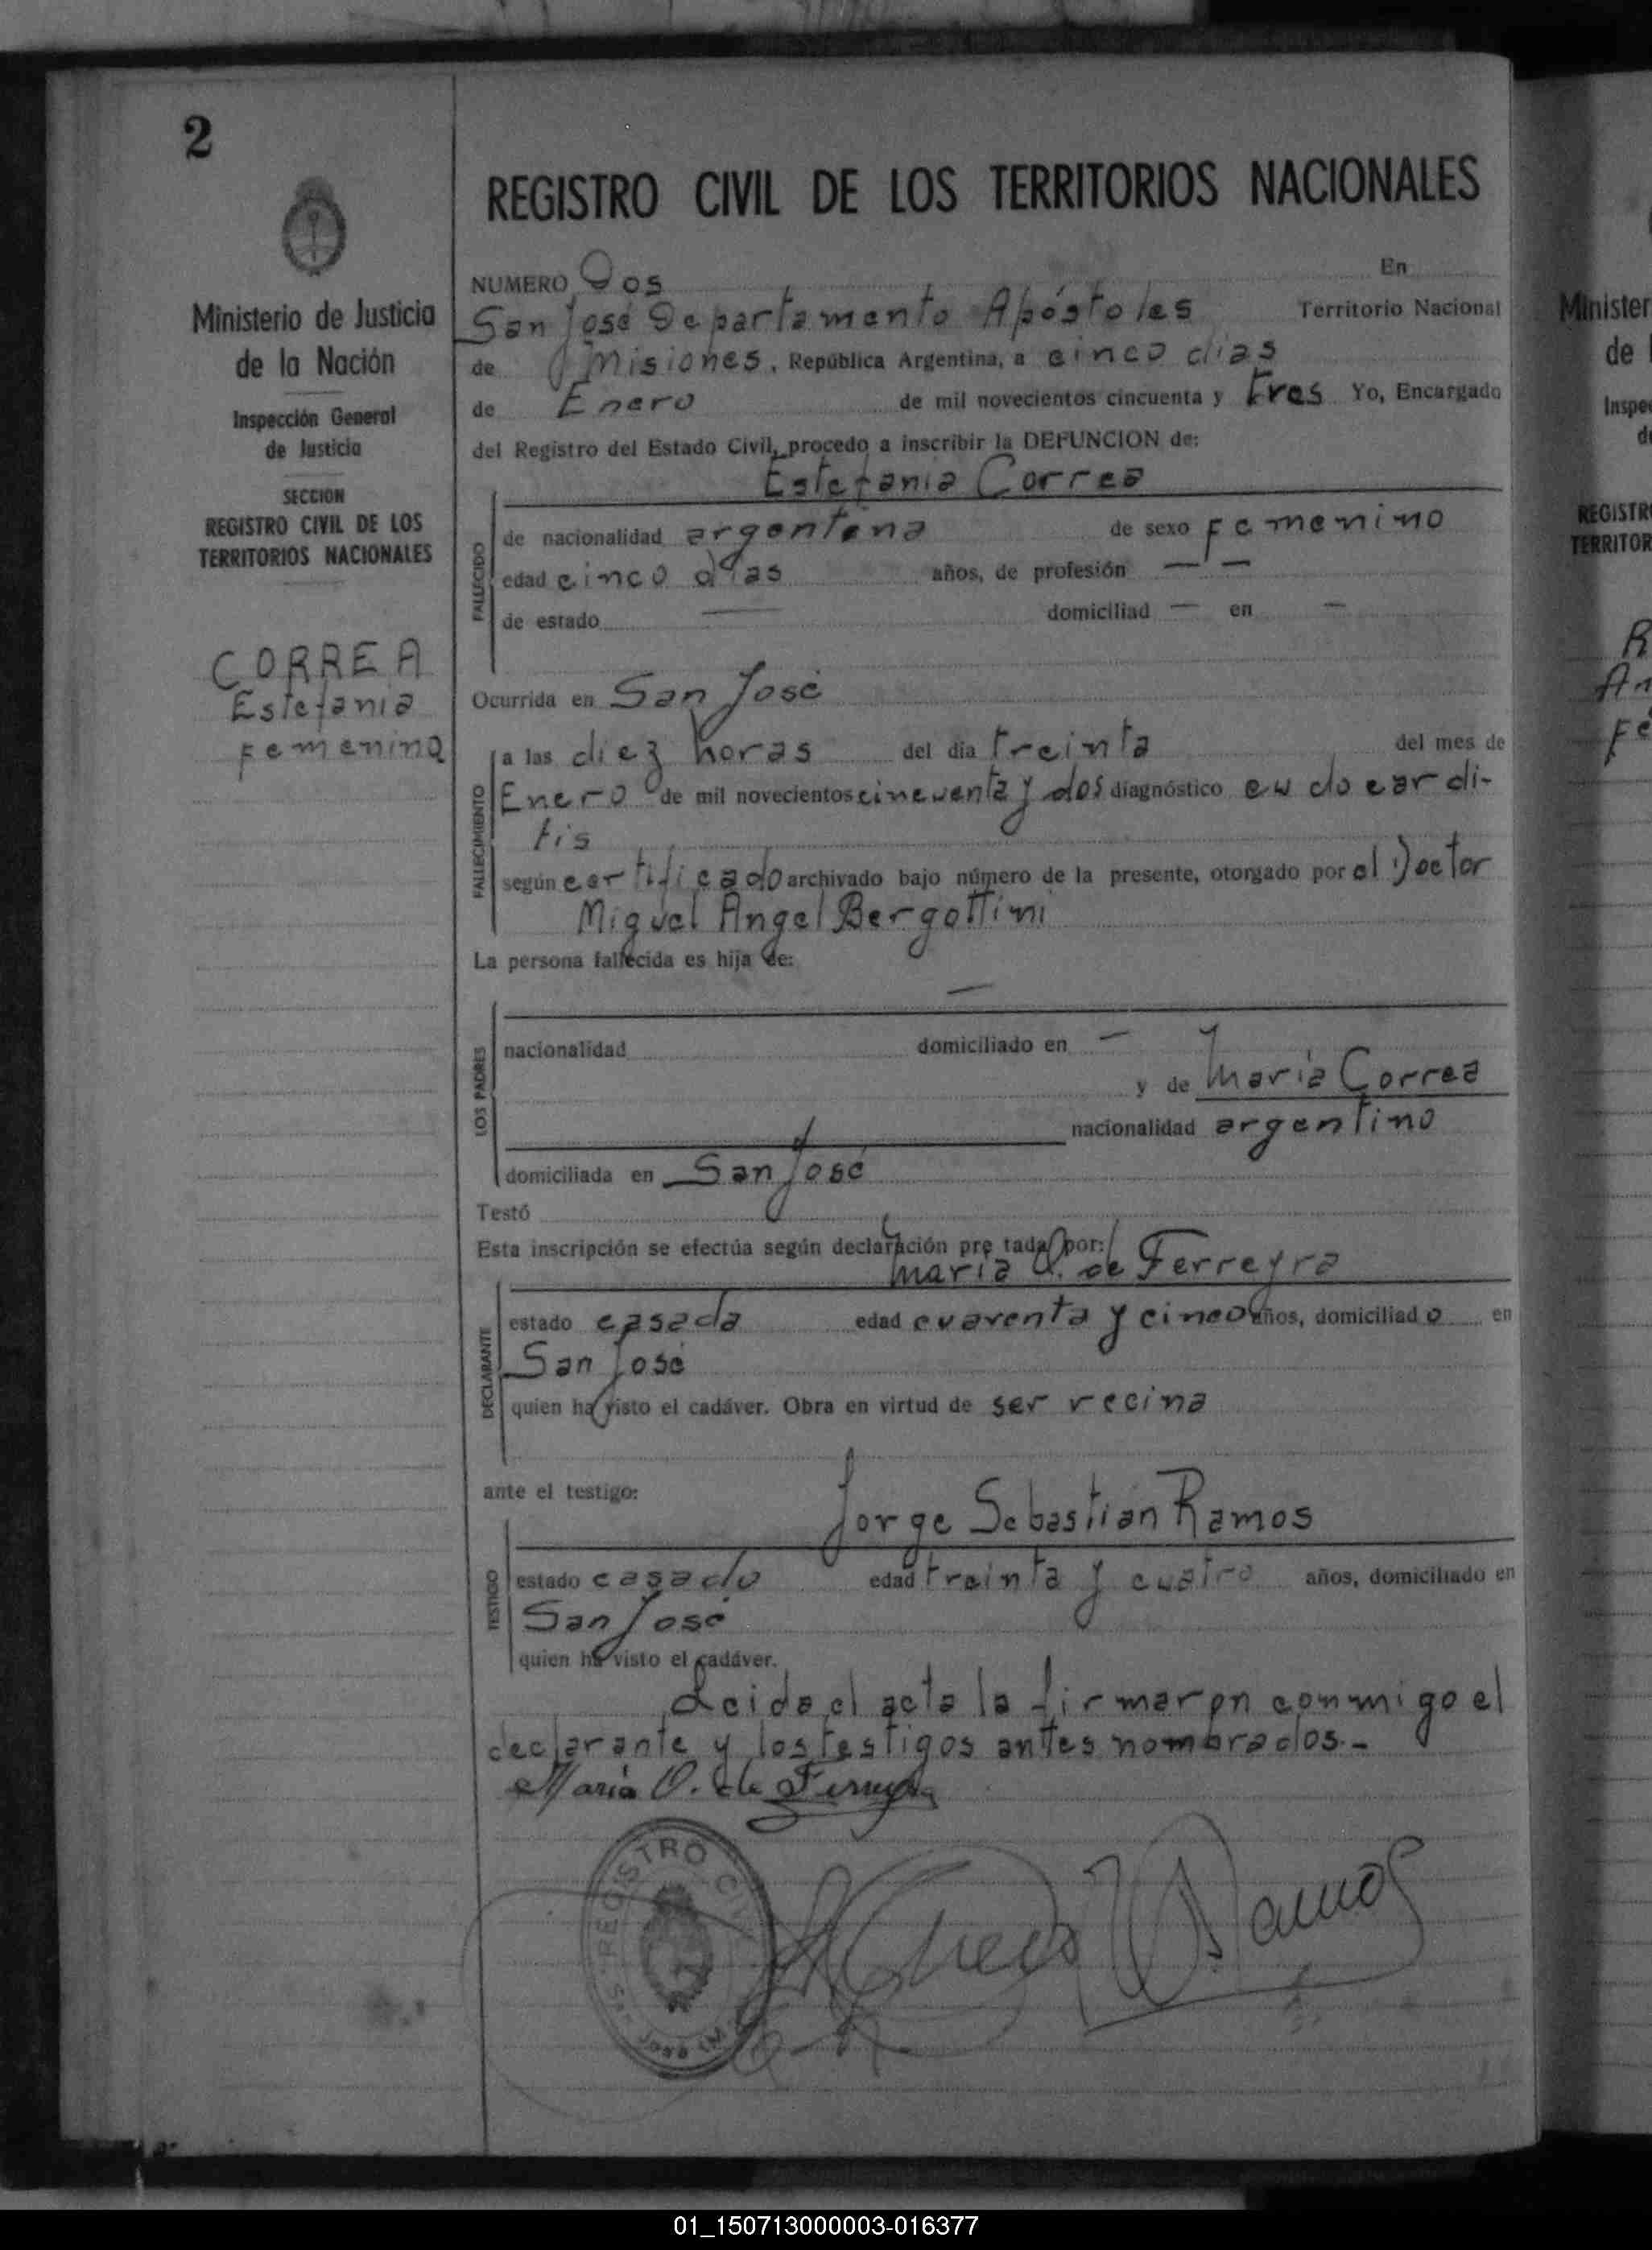 2
REGISTRO CIVIL DE LOS TERRITORIOS NACIONALES
Ministerio de Justicia
de la Nación
Inspección General
de Justicia
SECCION
REGISTRO CIVIL DE LOS
TERRITORIOS NACIONALES
CORREA
Estefania
Femenino
NUMERO Dos En
San José Departamento Apóstoles Territorio Nacional
de Misiones, República Argentina, a cinco dias
de Enero de mil novecientos cincuenta y tres Yo, Encargado
del Registro del Estado Civil, procedo a inscribir la DEFUNCION de:
Estefania Correa
FALLECIDO
de nacionalidad argentina de sexo Femenino
edad cinco dias años, de profesión — —
de estado — domiciliad — en —
Ocurrida en San José
FALLECIMIENTO
a las diez horas del día treinta del mes de
Enero de mil novecientos cincuenta y dos diagnóstico endocardi-
tis
según certificado archivado bajo número de la presente, otorgado por el Doctor
Miguel Angel Bergottini
La persona fallecida es hija de:
—
LOS PADRES
nacionalidad domiciliado en —
y de Maria Correa
nacionalidad argentino
domiciliada en San José
Testó
Esta inscripción se efectúa según declaración pre tada por:
Maria O. de Ferreyra
DECLARANTE
estado casada edad cuarenta y cinco años, domiciliado en
San José
quien ha visto el cadáver. Obra en virtud de ser vecina
ante el testigo:
Jorge Sebastian Ramos
TESTIGO
estado casado edad treinta y cuatro años, domiciliado en
San José
quien ha visto el cadáver.
Leida el acta la firmaron conmigo el
declarante y los testigos antes nombrados.-
Maria O. de Ferreyra
REGISTRO CIVIL
Ramos
Minister
de
Inspe
REGISTR
TERRITOR
01_150713000003-016377